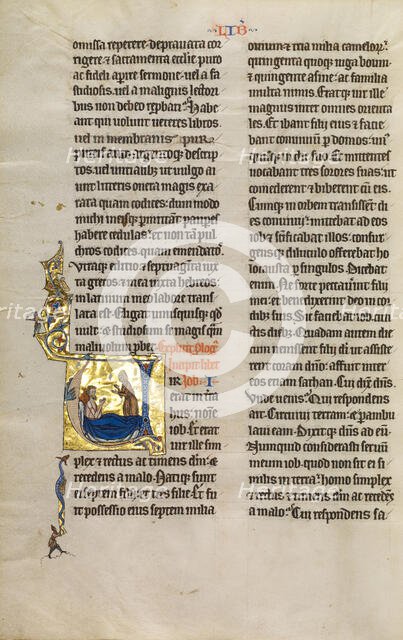 LIB
omissa repetere: deprauata cor
rigere: & sacramenta ecclie puro
ac fideli apire sermone: uel a fa
stidiosis. uel a malignis lectori
bus non debeo reprbari. Habe
ant qui uolunt ueteres libros
uel in membranis pur
pureis auro argentoq; descrip
tos. uel uncialib; ut uulgo ai
unt litteris onera magis exa
rata quam codices: dum modo
michi meisq; pmittant pauperes
habere cedulas: et non tam pul
chros codices quam emendatos.
Vtraq; editio & septuaginta iuxta
grecos: & mea iuxta hebreos:
in latinum meo labore trans
lata est. Eligat unusquisq; qd
uult: & studiosum se magis quam
maliuolum pbet. Explicit plog
Incipit liber
Iob. I
VIR
erat in tra
hus. noie
iob. Et erat
uir ille sim
plex & rectus ac timens dm: &
recedens a malo. Natiq; sunt
ei septem filii & tres filie. Et fu
it possessio eius septem milia
ouium: & tria milia camelor:
quingenta quoq; iuga boum:
& quingente asine: ac familia
multa nimis. Eratq; uir ille
magnus inter omnes orienta
les. Et ibant filii eius & facie
bant conuiuium p domos: un
usquisq; in die suo. Et mittentes
uocabant tres sorores suas: ut
comederent & biberent cum eis.
Cumq; in orbem transissent di
es conuiuii: mittebat ad eos
iob & sctificabat illos: confur
gensq; diluculo offerebat ho
locausta p singulos. Dicebat
enim. Ne forte peccauerint filii
mei: & benedixerint deo in cor
dibus suis. Sic faciebat iob cunctis
diebus. Quadam autem die
cum uenissent filii di ut assiste
rent coram dno: affuit inter
eos etiam sathan. Cui dixit dns.
Vnde uenis? Qui respondens
ait. Circuiui terram: & pambu
laui eam. Dixitq; dns ad eum.
Nunquid considerasti seruum
meum iob: quod non sit ei si
milis in terra: homo simplex
& rectus & timens dm ac recedens
a malo? Cui respondens sa
Heritage
Heritage
Heritage
Heritage